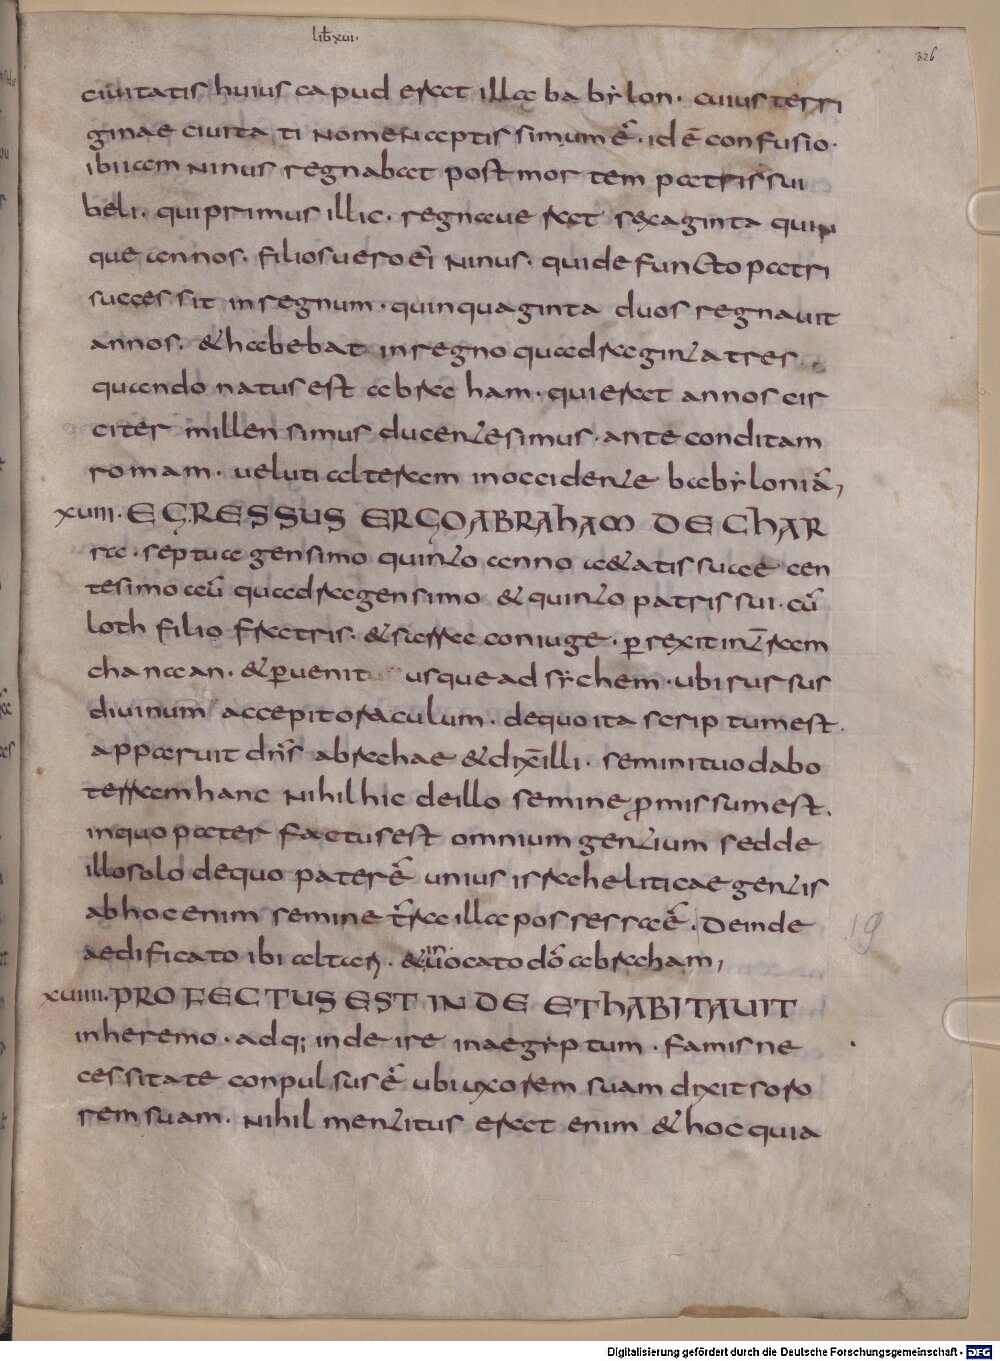 lib xvi.
326
ciuitatis huius capud erat illa babẏlon. cuius terri
ginae ciuita ti nomen aptissimum ē. id ē confusio.
ibi iam ninus regnabat post mortem patris sui
beli. qui primus illic. regnaue rat sexaginta quin
que annos. filios uero ei ninus. qui defuncto patri
successit in regnum. quinquaginta duos regnauit
annos. & habebat in regno quadraginta tres
quando natus est abra ham. qui erat annos cir
citer millensimus ducentesimus. ante conditam
romam. ueluti alteram in occidente babẏloniā,
xviii. EGRESSUS ERGO ABRAHAM DE CHAR
ra. septua gensimo quinto anno ae&atis suae cen
tesimo aū quadragensimo & quinto patris sui. cū
loth filio fratris. & sarra coniuge. perrexit in terram
chanaan. & peruenit usque ad sẏchem. ubi rursus
diuinum accepit oraculum. de quo ita scriptum est.
apparuit dn̄s abrahae & dix̄ illi. semini tuo dabo
terram hanc nihil hic de illo semine promissum est.
in quo pater factus est omnium gentium sed de
illo solo de quo pater ē unius israheliticae gentis
ab hoc enim semine t̄ra illa possessa ē. Deinde
aedificato ibi altari. & inuocato dō abraham,
xviiii. PROFECTUS EST INDE ET HABITAUIT
in heremo. adq; inde ire in aegẏptum. famis ne
cessitate conpulsus ē ubi uxorem suam dixit soro
rem suam. nihil mentitus erat enim & hoc quia
19
Digitalisierung gefördert durch die Deutsche Forschungsgemeinschaft - DFG